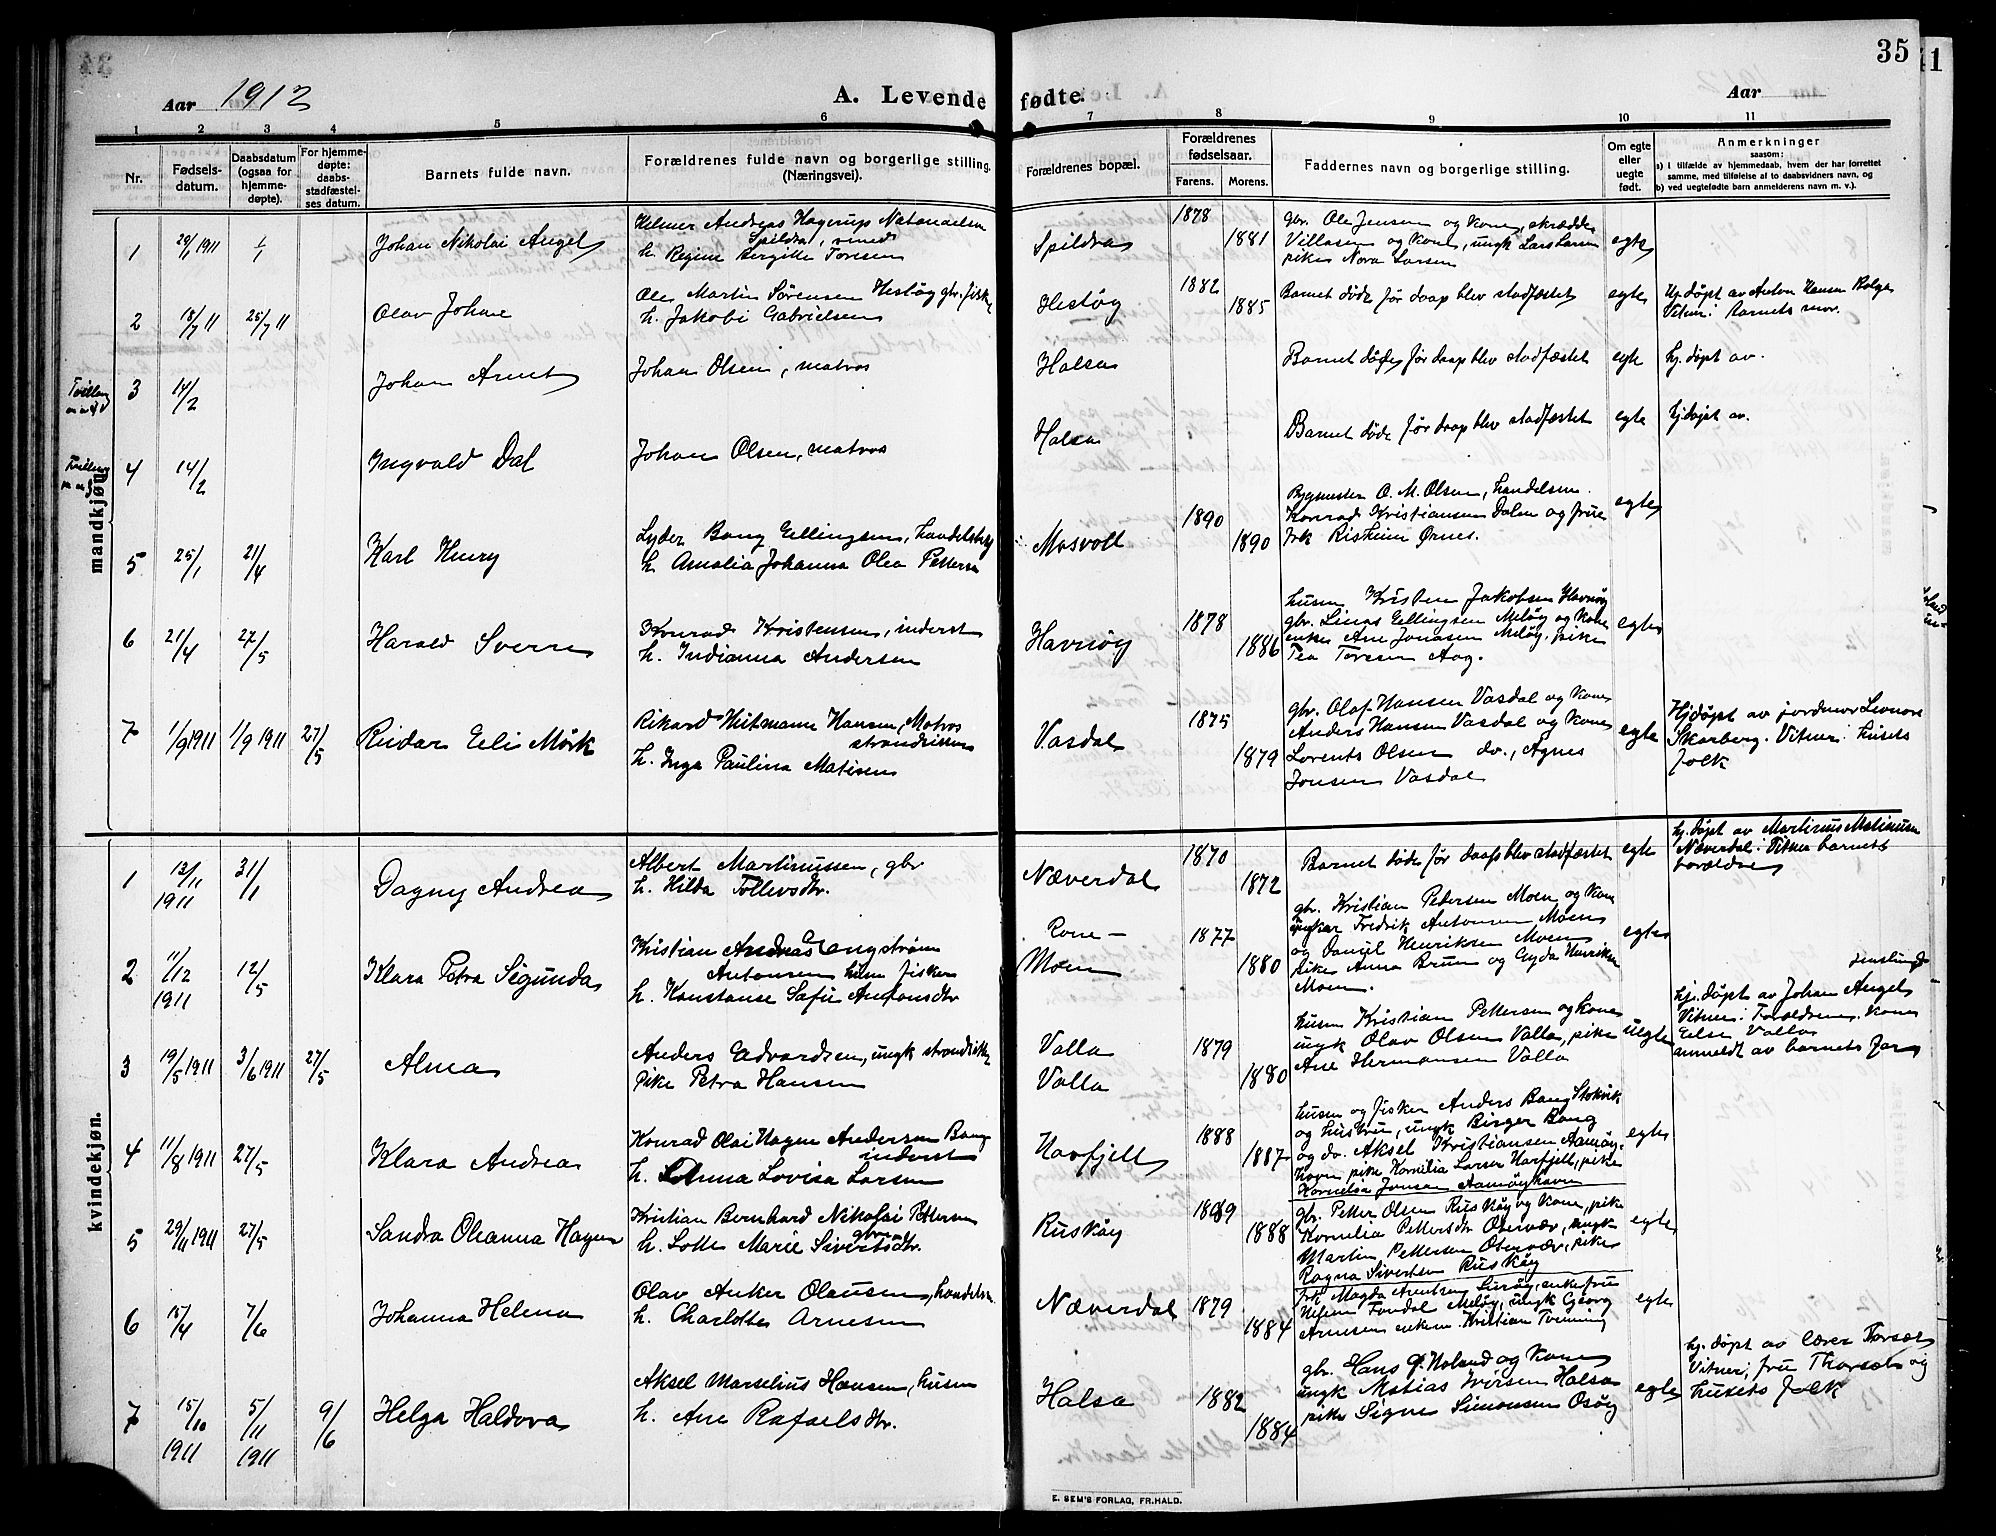 35
Aar 1912
A. Levende fødte.
Aar
1 2 3 4 5 6 7 8 9 10 11
Nr.
Fødsels-
datum.
Daabsdatum
(ogsaa for
hjemme-
døpte).
For hjemme-
døpte:
daabs-
stadfæstel-
ses datum.
Barnets fulde navn.
Forældrenes fulde navn og borgerlige stilling.
(Næringsvei).
Forældrenes bopæl.
Forældrenes
fødselsaar.
Farens. Morens.
Faddernes navn og borgerlige stilling.
Om egte
eller
uegte
født.
Anmerkninger
saasom:
a) i tilfælde av hjemmedaab, hvem der har forrettet
samme, med tilføielse af to daabsvidners navn, og
b) ved uegtefødte barn anmelderens navn m. v.).
mandkjøn.
1 29/1 1911 Johan Nikolai Angel
Hilmer Andreas Hagerup Natanaelsen
Spildra
h. Regine Bergitte Toresen
Spildra
1878
1881
gbr. Ole Jensen og kone, skrædder
Villasen og kone, ungk Lars Larsen
pike Nora Larsen
egte
2 18/7 11 25/7 11 Olav Johan
Ole Martin Sørensen Hestøy gbr. fisk
h. Jakobi Gabrielsen
Hestøy
1882
1885
Barnet døde før daap blev stadfæstet
egte
hj. døpt av Anton Hansen
Vitner: barnets mor.
3 14/2 Johan Arnt
Johan Olsen, matros
Halsa
Barnet døde før daap blev stadfæstet
egte
hj. døpt av.
4 14/2 Ingvald Dal
Johan Olsen, matros
Halsa
Barnet døde før daap blev stadfæstet
egte
hj døpt av.
5 25/1 21/4 Karl Henry
Lyder Bang Ellingsen, handelsbtj
h. Amalia Johanna Olea Pettersen
Mosvoll
1890
1890
Bygmester O. M. Olsen, handelsm.
Konrad Kristiansen Dalen og frue
frk Risheim Ørnes.
egte
6 21/4 27/5 Harald Sverre
Konrad Kristensen, inderst
h. Indianna Andersen
Havnøy
1878
1886
husm Kristen Jakobsen Havnøy
gbr. Linas Ellingsen Meløy og kone
enke Ane Jonasen Meløy, pike
Tea Toresen Aag.
egte
7 1/9 1911 1/9 1911 27/5 Reidar Eeli Mørk
Rikard Hutmann Hansen, Matros
strandsitter
h. Inga Paulina Matisen
Vasdal
1875
1879
gbr. Olaf Hansen Vasdal og kone
Anders Hansen Vasdal og kone
Lorents Olsen do., Agnes
Jonsen Vasdal
egte
Hjdøpt av jordmor Leonore
Skarberg. Vitner: husets
folk
kvindekjøn.
1 12/11 1911 31/1 Dagny Andrea
Albert Martinussen, gbr
h. Hilda Tollevsdtr.
Næverdal
1870
1872
Barnet døde før daab blev stadfæstet
egte
hj. døpt av Martinus Matinusen
Næverdal. Vitner barnets
forældre
2 11/12 1911 12/5 Klara Petra Sigunda
Kristian Andreas Engstrøm
Antonsen husm fisker
h. Konstanse Sofie Antonsdtr
Rone –
Moen
1877
1880
gbr. Kristian Pedersen Moen og kone
ungkar Fredrik Antonsen Moen
og Daniel Henriksen Moen
pike Anna Bruun og Gyda Henriksen
Moen.
egte
3 19/5 1911 3/6 1911 27/5 Alma
Anders Edvardsen, ungk strandsitter
pike Petra Hansen
Valla
Valla
1879
1880
husm Kristian Pettersen og kone
ungk Olav Olsen Valla, pike
Ane Hermansen Valla
uegte
hj. døpt av Johan Angel
Jenslund
Vitner: Forældrene, kone
Else Valla
anmeldt av barnets far
4 11/8 1911 27/5 Klara Andrea
Konrad Olai Hagen Andersen Bang
inderst
h. Anna Lovisa Larsen
Havfjell
1888
1887
husm og fisker Anders Bang Stokvik
og hustru, ungk Birger Bang
og do. Aksel Kristiansen Aamøy
havn, pike Kornilia Larsen Harfjell, pike
Kornelia Jonsen Aamøyhavn
egte
5 29/11 1911 27/5 Sandra Oleanna Hagen
Kristian Bernhard Nikolai Pettersen
gbr
h. Lotte Marie Sivertsdtr.
Ruskøy
1889
1888
gbr. Petter Olsen Ruskøy og kone, pike
Kornilia Pettersdtr Otervær, ungk
Martin Pettersen Otervær, pike
Ragna Sivertsen Ruskøy
egte
6 15/4 7/6 Johanna Helena
Olav Anker Olausen, handelsm.
h. Charlotte Arnesen
Næverdal
1879
1884
frk Magda Arentsen Lurøy, enkefrue
Nilsen Fondal Meløy, ungk Georg
Arnesen, enkem. Kristian Tvenning
egte
7 15/10 1911 5/11 1911 9/6 Helga Haldora
Aksel Marselius Hansen, husm
h. Ane Rafaelsdtr.
Halsa
1882
1884
gbr. Hans P. Noland og kone
ungk Matias Iversen Halsa
pike Signe Simonsen Osøy
egte
hj. døpt av lærer Torset
Vitner: fru Thorset og
husets folk
E. SEM'S FORLAG, FR.HALD.